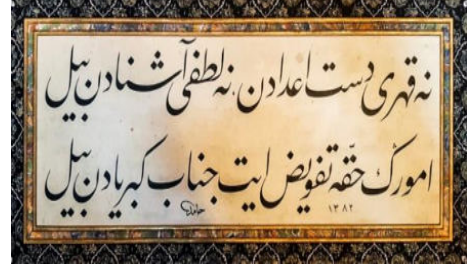 نه قهری دست اعدادن نه لطفی آشنادن بیل
امورڭ حقّه تفویض ایت جناب کبریادن بیل
حامد ١٣٨٢